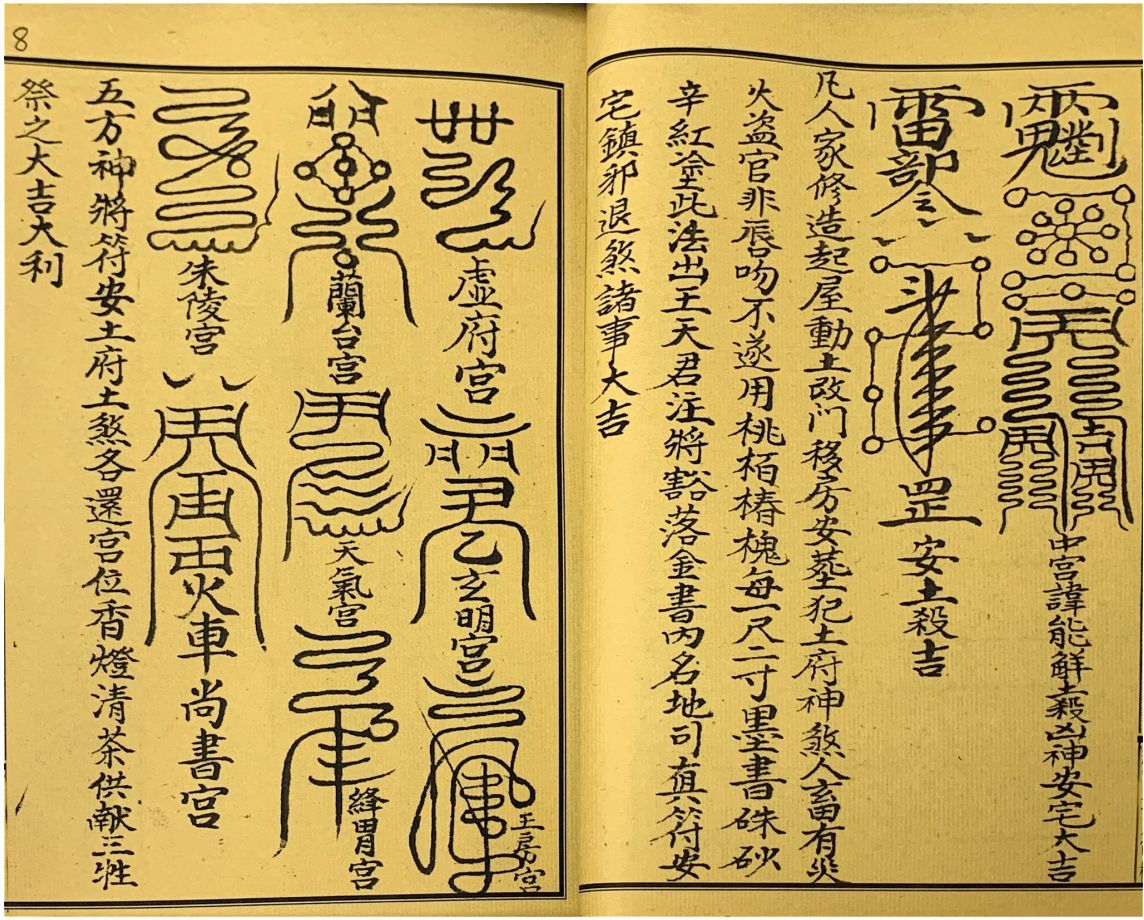 中宮諱能解土殺凶神安宅大吉
雷部令
罡
安土殺吉
凡人家修造起屋動土改门移房安塟犯土府神煞人畜有災
火盗官非唇吻不遂用桃栢椿槐每一尺二寸墨書硃砂
辛紅塗此法出王天君注將豁落金書内名地司真符安
宅鎮邪退煞諸事大吉
虚府宮
玄明宮
玉房宮
蘭台宮
天氣宮
絳胃宮
朱陵宮
火車
尚書宮
五方神將符安土府土煞各還宫位香燈清茶供献三牲
祭之大吉大利
8